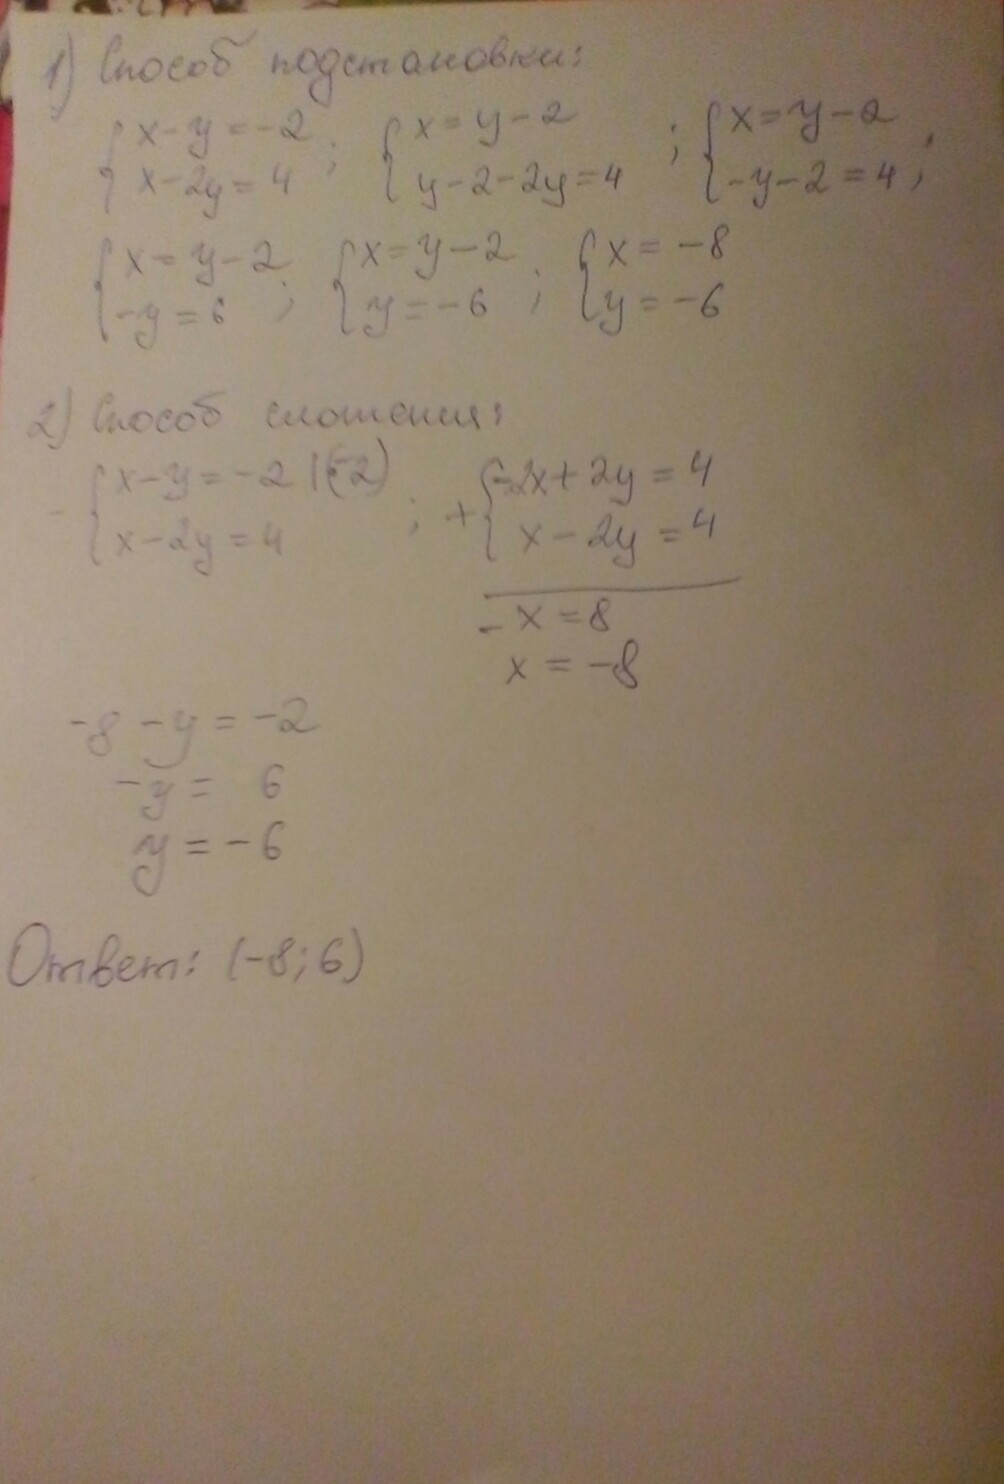 1) Способ подстановки:
{x-y=-2 ; {x=y-2 ; {x=y-2 ;
{x-2y=4 {y-2-2y=4 {-y-2=4 ;
{x=y-2 ; {x=y-2 ; {x=-8
{-y=6 {y=-6 {y=-6
2) Способ сложения:
- {x-y=-2 |(-2) ; + {-2x+2y=4
{x-2y=4 {x-2y=4
-x=8
x=-8
-8-y=-2
-y= 6
y=-6
Ответ: (-8;6)